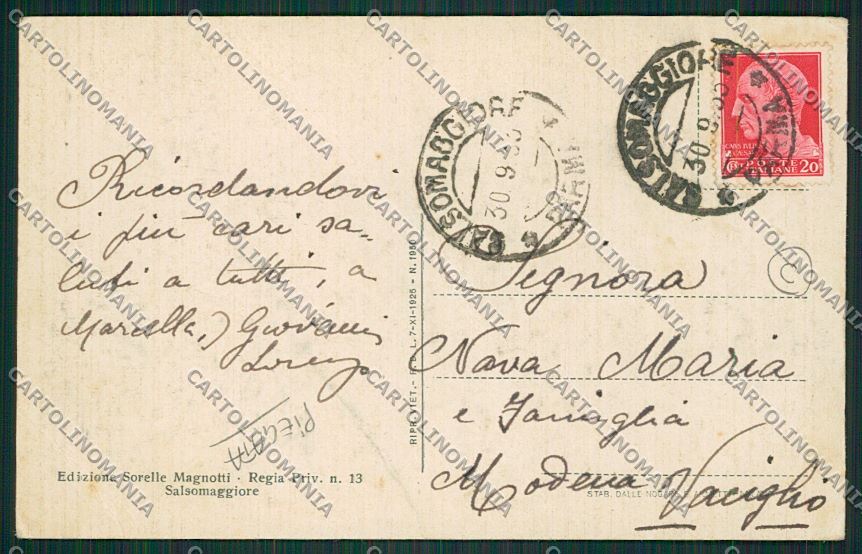 Ricordandovi
i più cari sa-
luti a tutti, a
Marcella,) Giovanni
Lorenzo
PIEGATA
Edizione Sorelle Magnotti - Regia Priv. n. 13
Salsomaggiore
RIPR. VIET. - L. 7-XI-1925 - N. 1950
SALSOMAGGIORE * PARMA *
30 9 33
SALSOMAGGIORE * PARMA *
30 9 33
POSTE
ITALIANE 20
C
Signora
Nava Maria
e Famiglia
Modena Vaciglio
STAB. DALLE NOGARE E ARMETTI
CARTOLINOMANIA